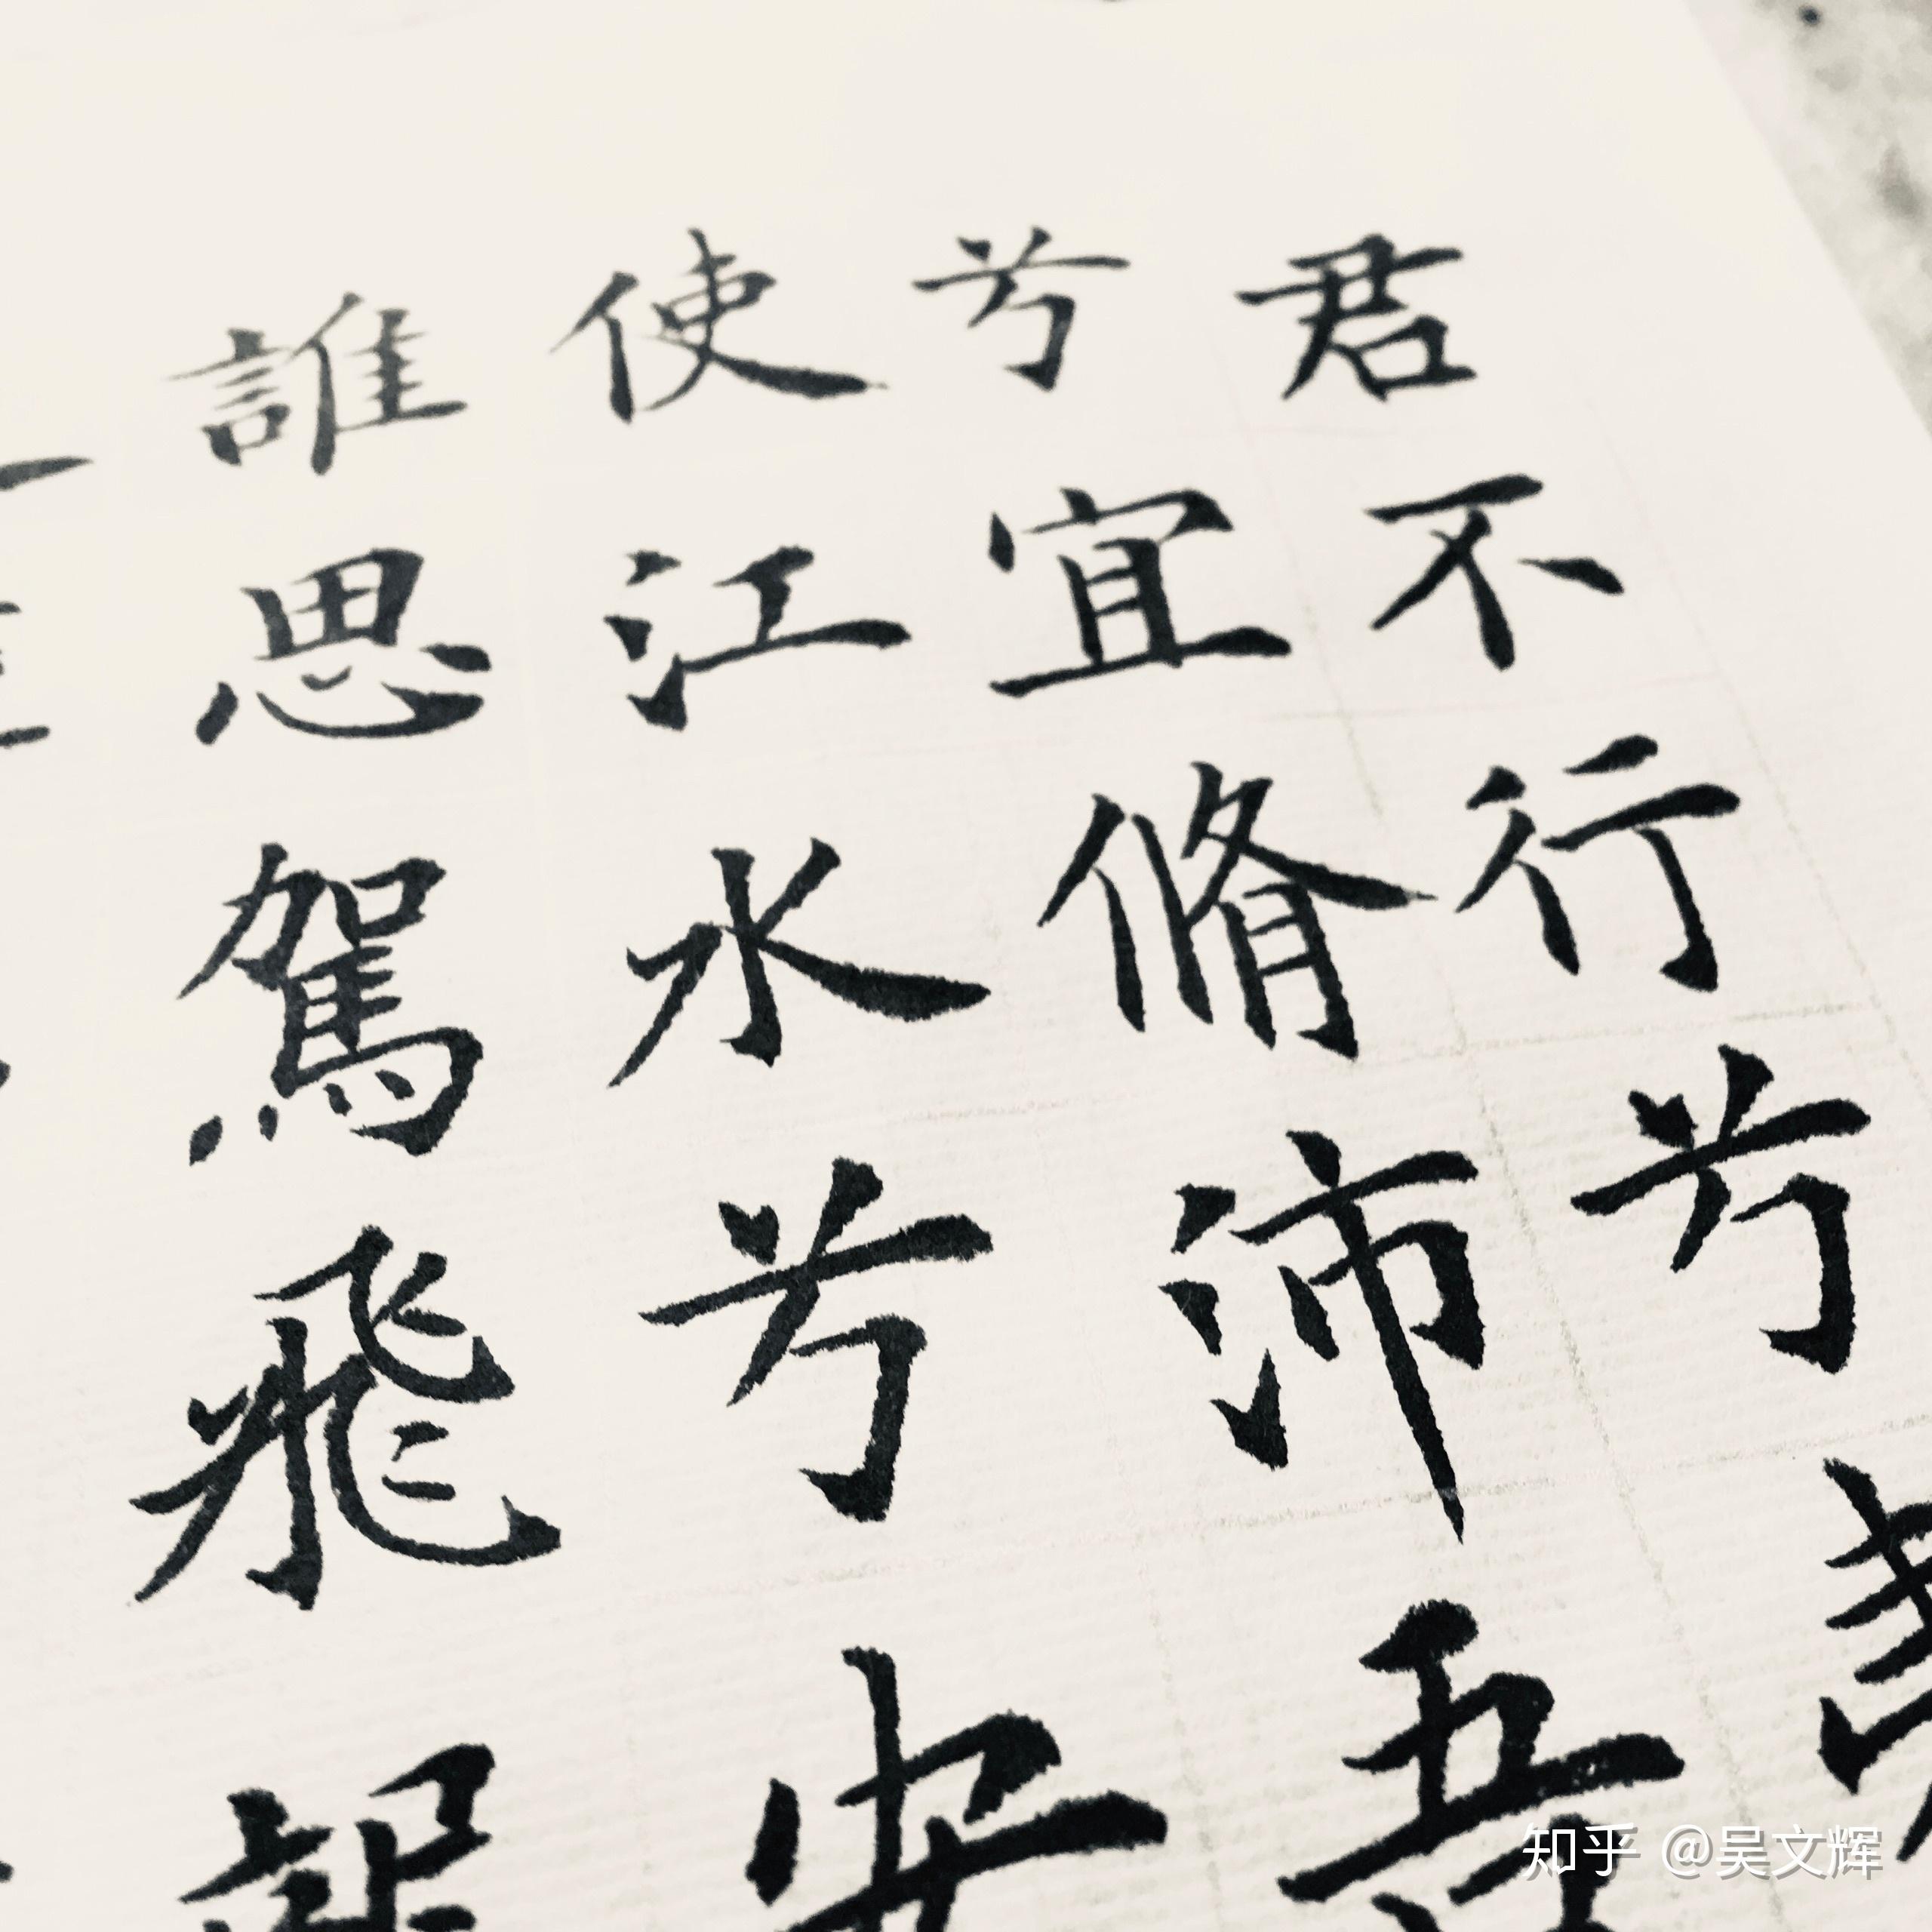 君不行兮夷
兮宜脩沛吾
使江水兮安
誰思駕飛龍
知乎 @吴文辉